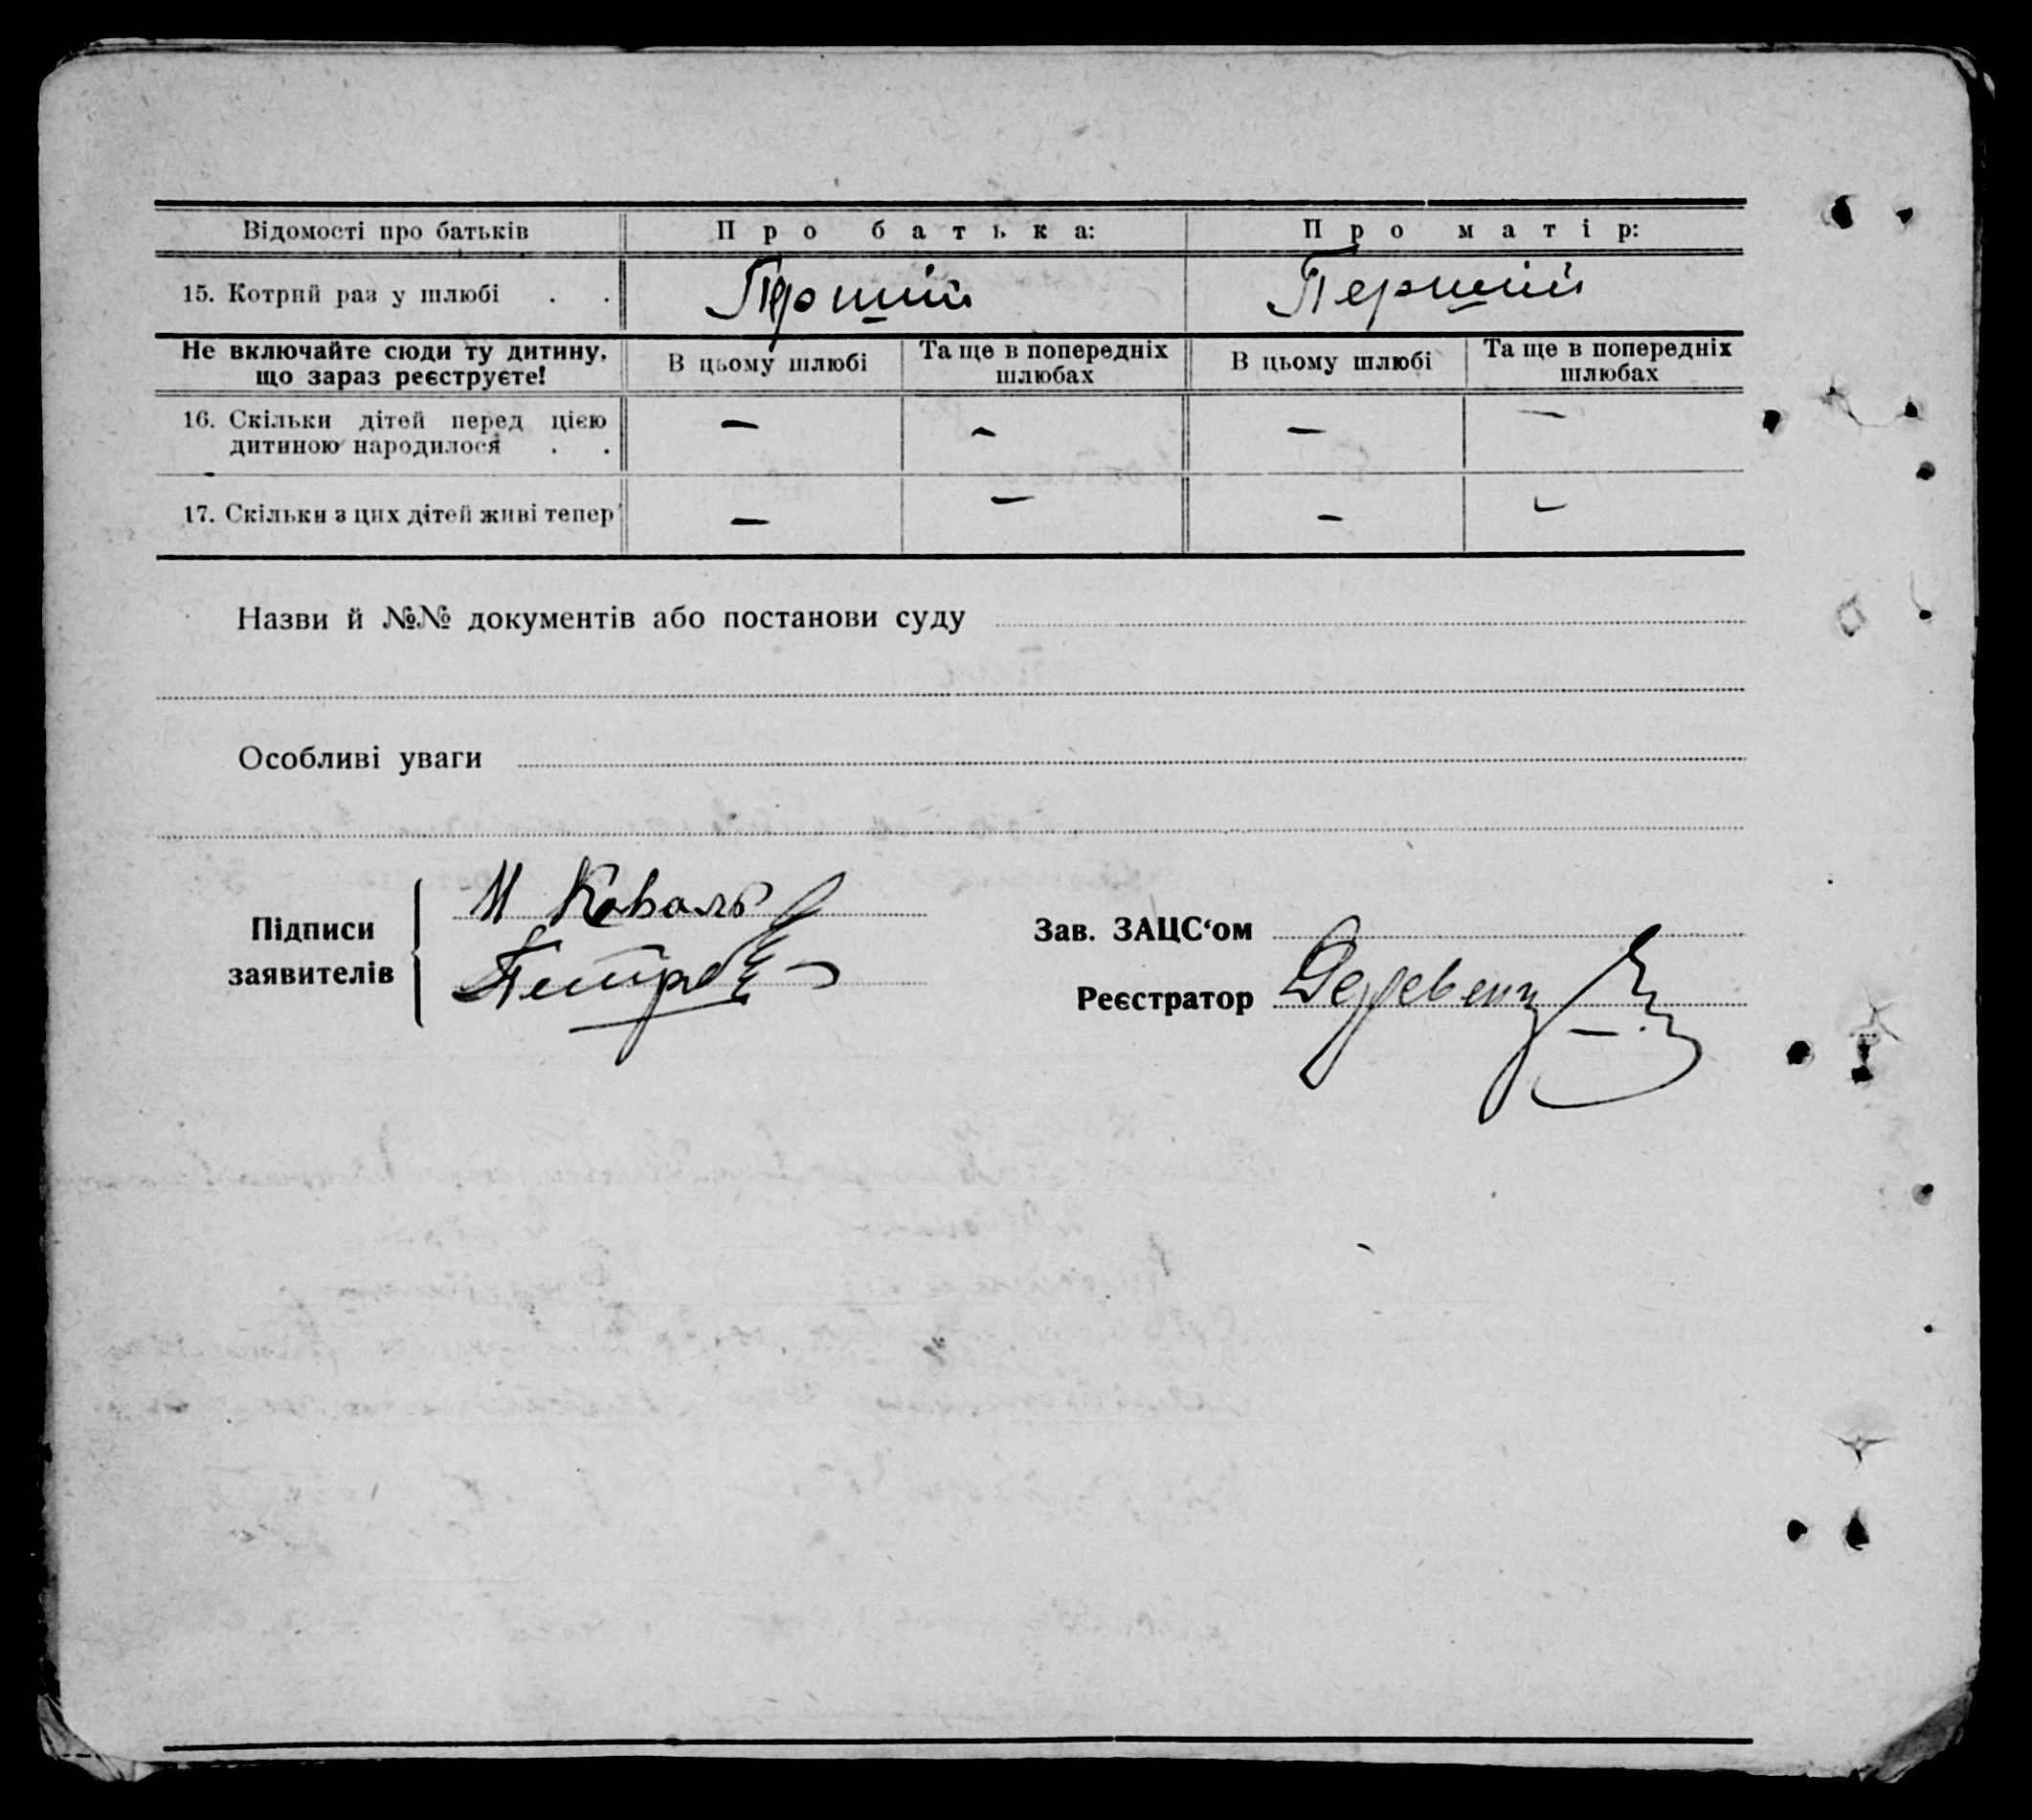 Відомості про батьків Про батька: Про матір:
15. Котрий раз у шлюбі . . Перший Перший
Не включайте сюди ту дитину, що зараз реєструєте! В цьому шлюбі Та ще в попередніх шлюбах В цьому шлюбі Та ще в попередніх шлюбах
16. Скільки дітей перед цією — — — —
дитиною народилося . .
17. Скільки з цих дітей живі тепер — — — —
Назви й №№ документів або постанови суду
Особливі уваги
Підписи заявителів
М Коваль
Петров
Зав. ЗАЦС‘ом
Реєстратор